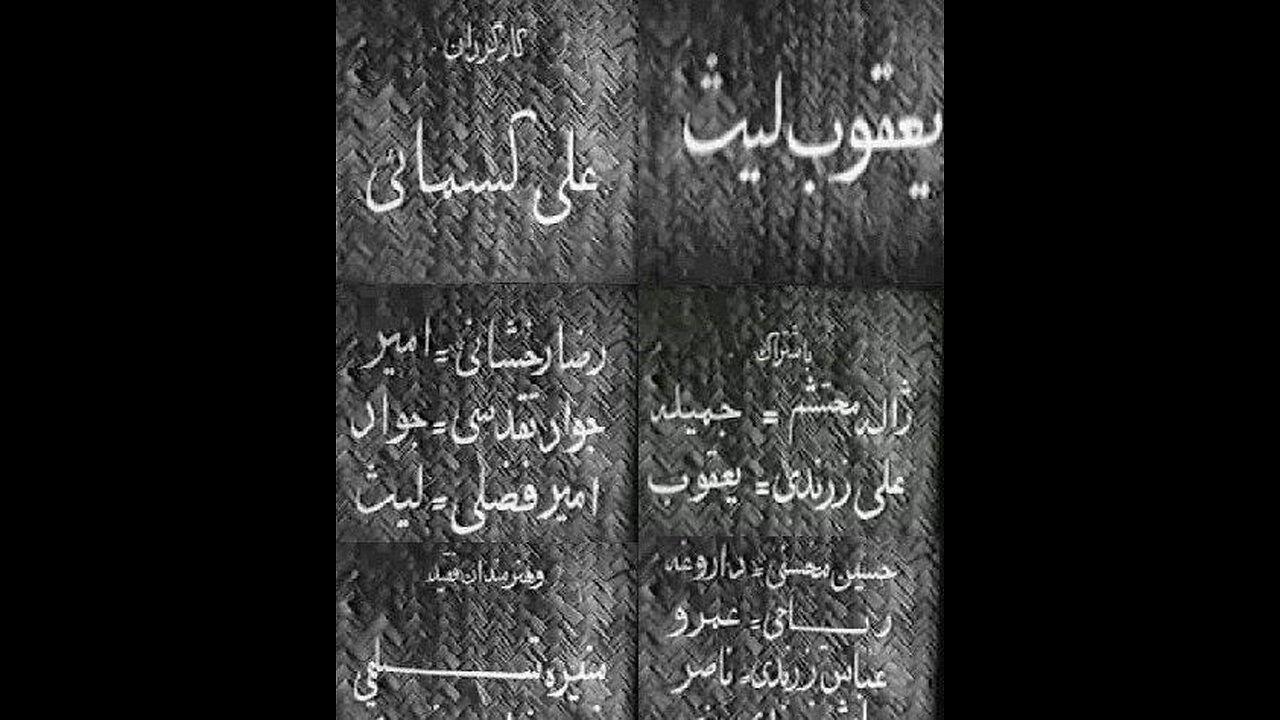 یعقوب لیث
کارگردان
علی کسمائی
باشتراک
ژاله محتشم = جمیله
علی زرندی = یعقوب
رضا رخشانی = امیر
جواد تقدسی = جواد
امیر فضلی = لیث
حسین محسنی = داروغه
ریاحی = عمرو
عباس زرندی = ناصر
وهنرمندان فقید
منیره تسلیمی